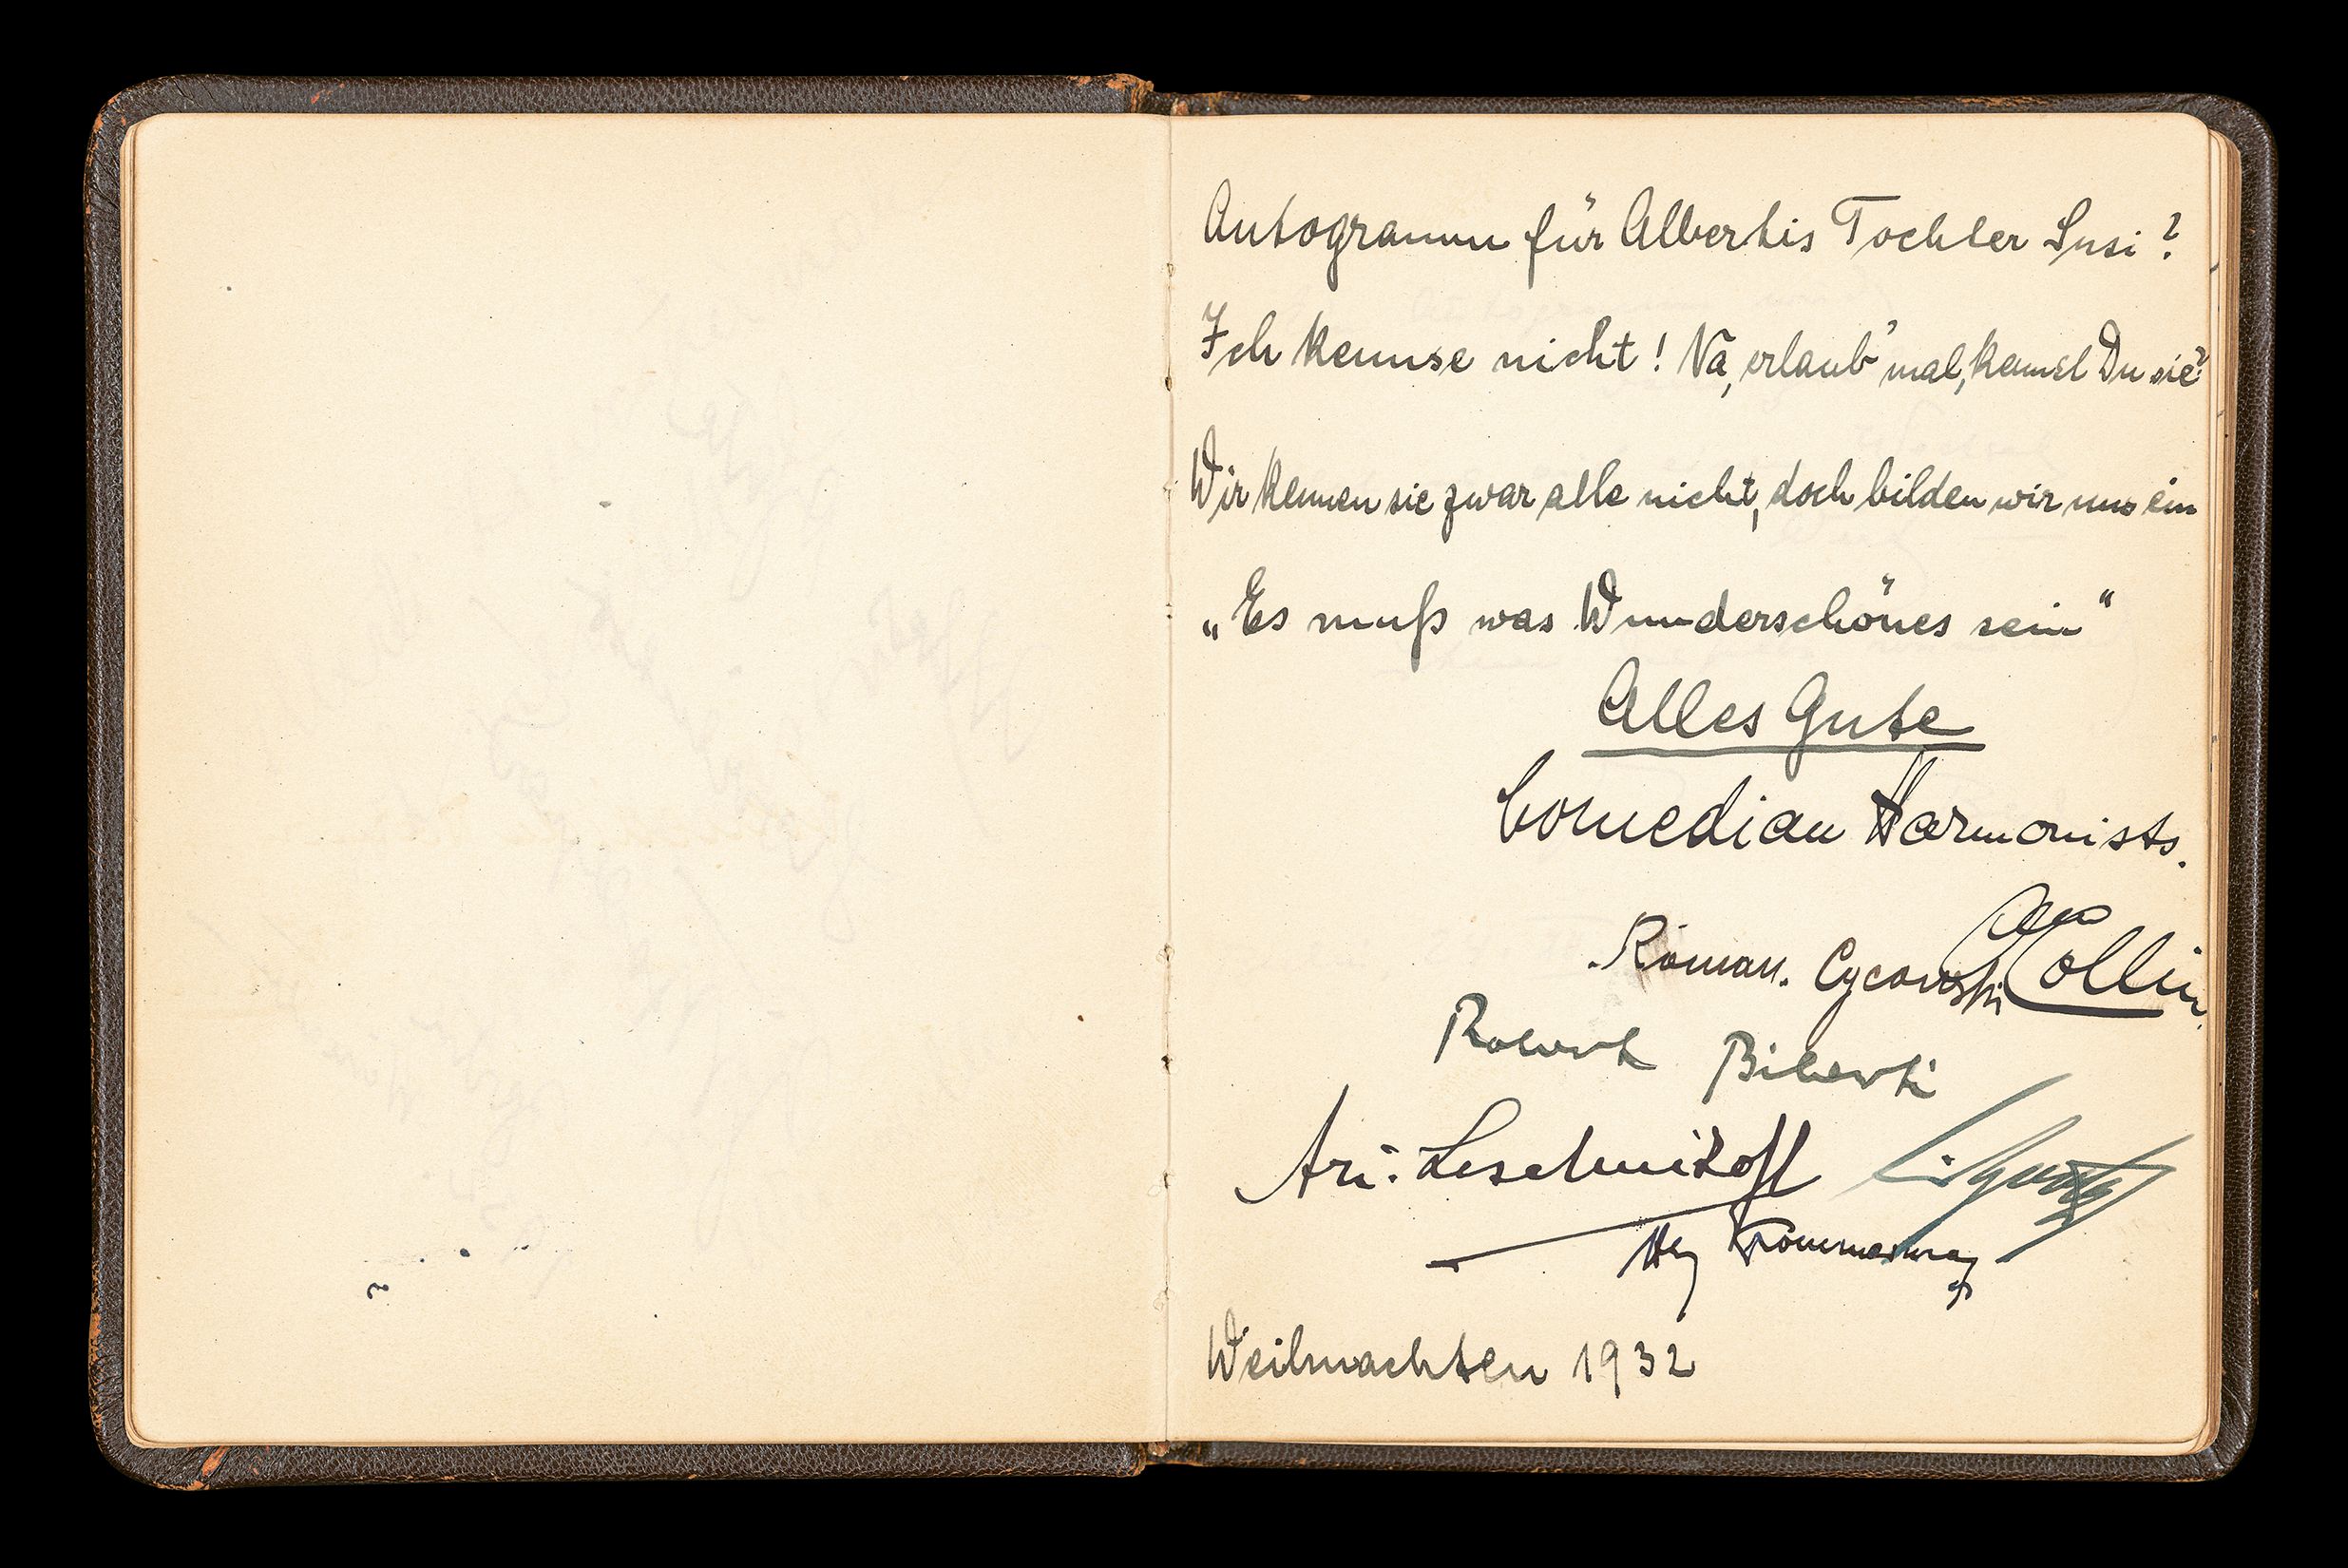 Autogramm für Albertis Tochter Susi?
Ich kennse nicht! Na, erlaub' mal, kennst Du sie?
Wir kennen sie zwar alle nicht, doch bilden wir uns ein
„Es muß was Wunderschönes sein“
Alles Gute
Comedian Harmonists.
Collin
Roman. Cycowski
Robert Biberti
Ari. Leschnikoff
Weihnachten 1932